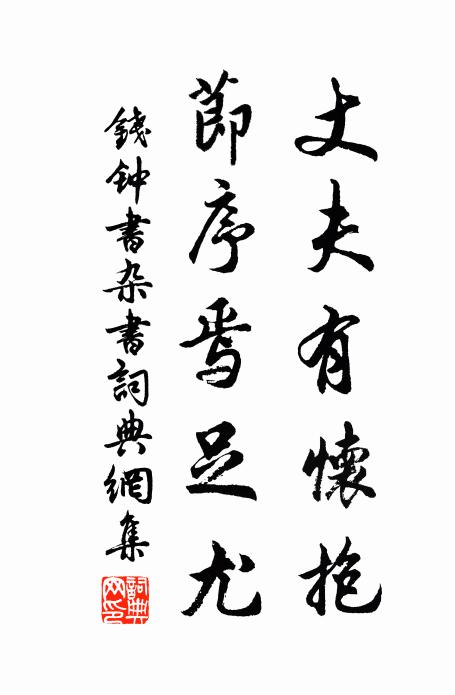 丈夫有懷抱
節序焉足尤
錢钟書杂書詞典網集
詞典网印